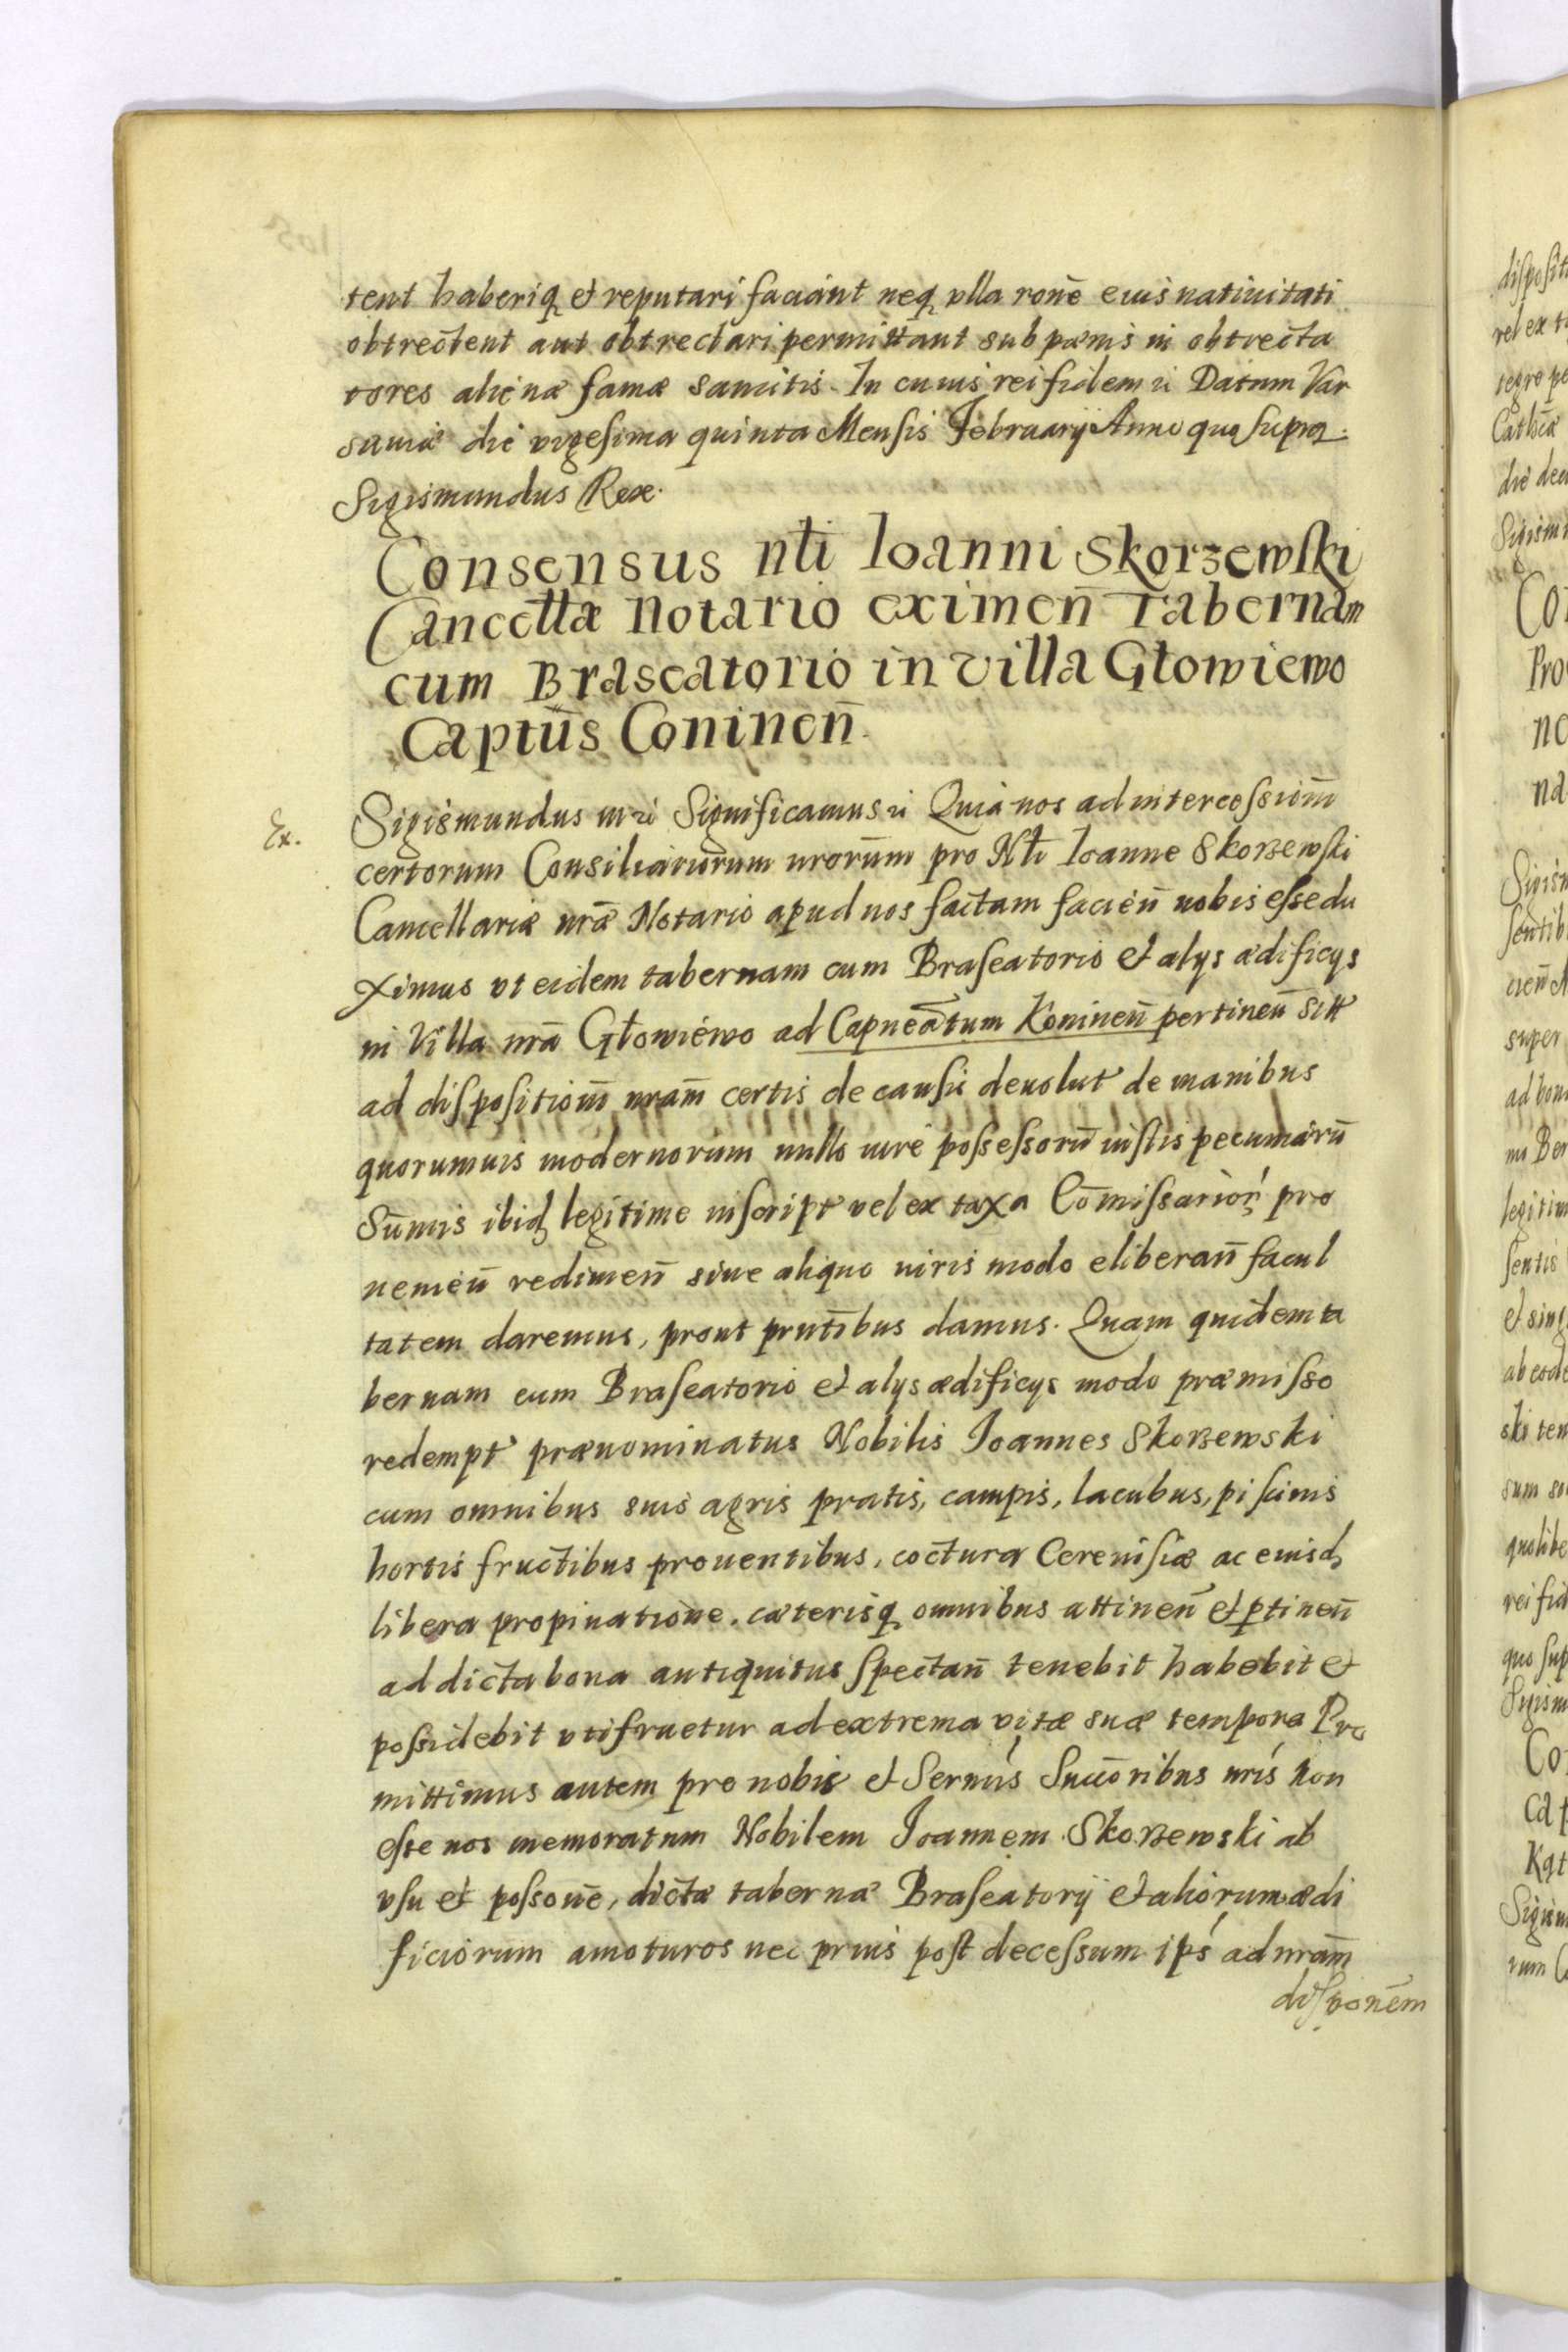 tent haberiq et reputari faciant neq vlla ronē eius natiuitati
obtrectent aut obtrectari permittant sub pænis in obtrecta
tores alienæ famæ sancitis. In cuius rei fidem Datum Var
sauiæ die vigesima quinta Mensis February Anno quo supra.
Sigismundus Rex.
Consensus nłi Ioanni Skorzewski
Cancełłæ Notario eximeñ Tabernam
cum Braseatorio in villa Głowiewo
Captūs Coninen̄.
Ex.
Sigismundus Significamus Quia nos ad intercessiom̄
certorum Consiliariorum nrorum pro Nłi Ioanne Skorzewski
Cancellariæ nrǣ Notario apud nos factam facien̄ nobis esse du
ximus vt eidem tabernam cum Braseatorio et alys ædificys
in Villa nrā Głowiewo ad Capneātum Koninen̄ pertinen̄ sitt
ad dispositiom̄ nram̄ certis de causis deuolut de manibus
quorumuis modernorum nullo iure possessorū iustis pecuniarū
Sum̄is ibid legitime inscript vel ex taxa Com̄issarior pro
uenien̄ redimen̄ siue aliquo iuris modo eliberan̄ facul
tatem daremus, prout pntibus damus. Quam quidem ta
bernam cum Braseatorio et alys ædificys modo præmisso
redempt prænominatus Nobilis Ioannes Skorzewski
cum omnibus suis agris pratis, campis, lacubus, piscinis
hortis fructibus prouentibus, coctura Cereuisiæ ac eiusd
libera propinatione, cæterisq omnibus attinen̄ et ptinen̄
ad dicta bona antiquitus spectan̄ tenebit habebit et
possidebit vtifruetur ad extrema vitæ suæ tempora Pro
mittimus autem pro nobis et Sernis Succ̄oribus nris non
esse nos memoratum Nobilem Ioannem Skorzewski ab
vsu et possonē, dictæ tabernæ Braseatorij et aliorum ædi
ficiorum amoturos nec prius post decessum ips ad nram̄
disponēm